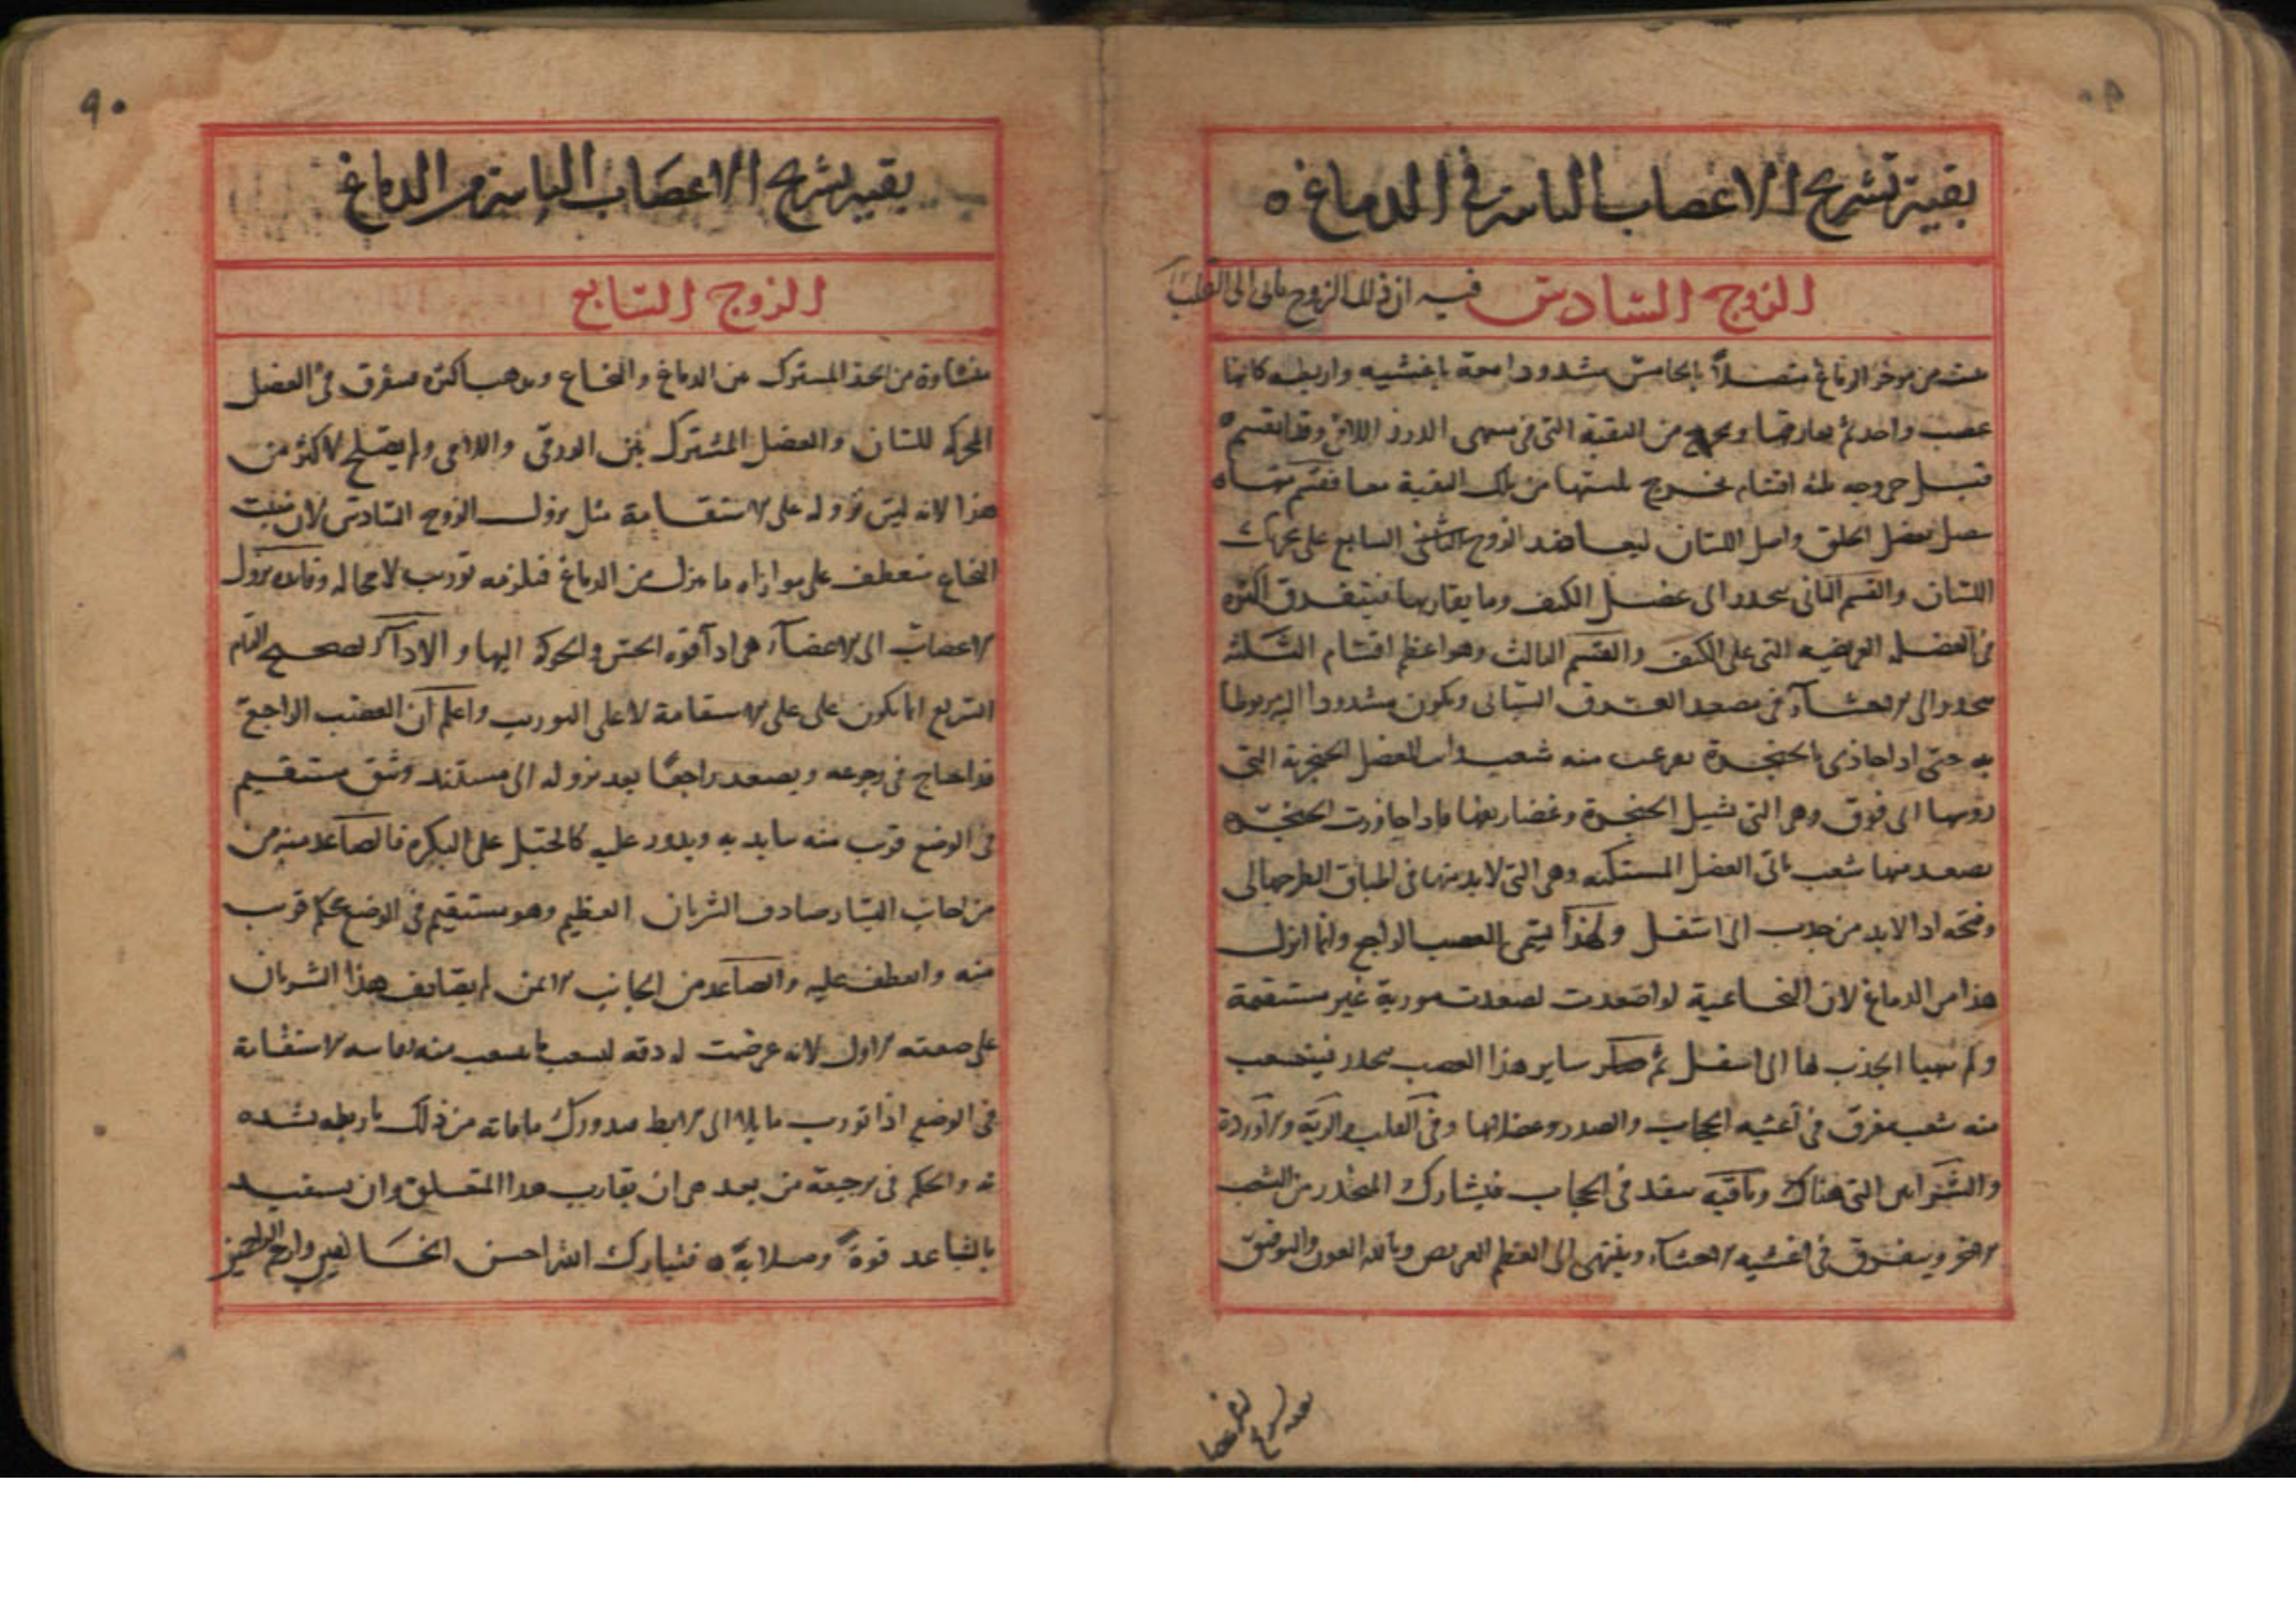 بقية تشريح الاعصاب النابته في الدماغ ه
الزوج السادس فيه ان ذلك الزوج ياتي الى القلب
منبته من موخر الدماغ متصلاً بالخامس مشدودا معه باغشيه واربطه كانها
عصب واحد ثم يفارقها ويخرج من الثقبة التي في منتهى الدرز اللامي وقد انقسم
قبل خروجه ثلثه اقسام يخرج ثلثتها من تلك الثقبة معا فقسم منها ه
يصل بعضل الحلق واصل اللسان ليعاضد الزوج السابع على تحريك
اللسان والقسم الثاني ينحدر الى عضل الكتف وما يقاربها فيتفرق اكثره
في العضله العريضه التي على الكتف والقسم الثالث وهو اعظم اقسام الثلثه
ينحدر الى الاحشاء في مصعد العرق السباتي ويكون مشدودا اليه مربوطا
به حتى اذا حاذى الحنجرة تفرعت منه شعب واتت العضل الحنجرية التي
روسها الى فوق وهي التي تشيل الحنجرة وغضاريفها فاذا جاوزت الحنجرة
يصعد منها شعب تاتي العضل المستكنه وهي التي لا بد منها في اطباق الطرجهالي
وفتحه اذ لا بد من جذب الى اسفل ولهذا يسمى العصب الراجع وانما انزل
هذا من الدماغ لان النخاعية لو اصعدت لصعدت موربة غير مستقيمة
ولم يتهيا الجذب لها الى اسفل ثم ساير هذا العصب ينحدر فيتشعب
منه شعب تتفرق في اغشيه الحجاب والصدر وعضلاتها وفي القلب والرية والاوردة
والشرايين التي هناك وباقيه ينفذ في الحجاب فيشارك المنحدر من الشعب
الاخر ويتفرق في اغشيه الاحشاء وينتهي الى العظم العريض وبالله العون والتوفيق
بقية تشريح الاعصا
٩٠
بقيه تشريح الاعصاب النابتة من الدماغ
الزوج السابع
منشاوة من الحد المشترك من الدماغ والنخاع ويذهب اكثره متفرق في العضل
المحركه للسان والعضل المشترك بين الدرقي واللامي ولم يصلح لاكثر من
هذا لانه ليس نزوله على الاستقامة مثل نزول الزوج السادس لان منبت
النخاع منعطف على موازاه ما ينزل من الدماغ فيلزمه تورب لا محاله وفايده نزول
الاعصاب الى الاعضاء هي اداء قوه الحس والحركه اليها والاداء الصحيح التام
السريع انما يكون على على الاستقامة لا على التوريب واعلم ان العصب الراجع
قد احتاج في رجوعه ويصعد راجعا بعد نزوله الى مستند وثق مستقيم
في الوضع قرب منه ساند به ويدور عليه كالحبل على البكره فالصاعد منه من
من جانب اليسار صادف الشريان العظيم وهو مستقيم في الوضع محكم قرب
منه وانعطف عليه والصاعد من الجانب الايمن لم يصادف هذا الشريان
على صفته الاول لانه عرضت له دقه لتشعب ما تشعب منه وفاته الاستقامة
في الوضع اذا تورب مايلا الى الابط فتدورك ما فاته من ذلك باربطه تشده
به والحكم في رجعته من بعد هي ان يقارب هذا المتعلق وان يستفيد
بالتباعد قوة وصلابة ه فتبارك الله احسن الخالقين وارحم الراحمين